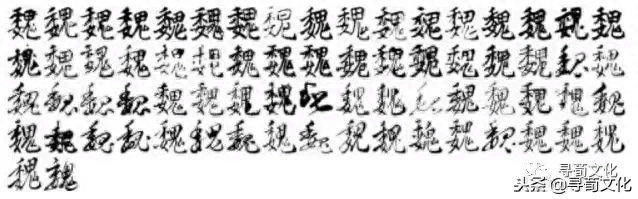 魏魏魏魏魏魏魏魏魏魏魏魏魏魏魏魏魏
魏魏魏魏魏魏魏魏魏魏魏魏魏魏魏魏魏
魏魏魏魏魏魏魏魏魏魏魏魏魏魏魏魏魏
魏魏魏魏魏魏魏魏魏魏魏魏魏魏魏魏魏
魏魏
寻荀文化
头条@寻荀文化